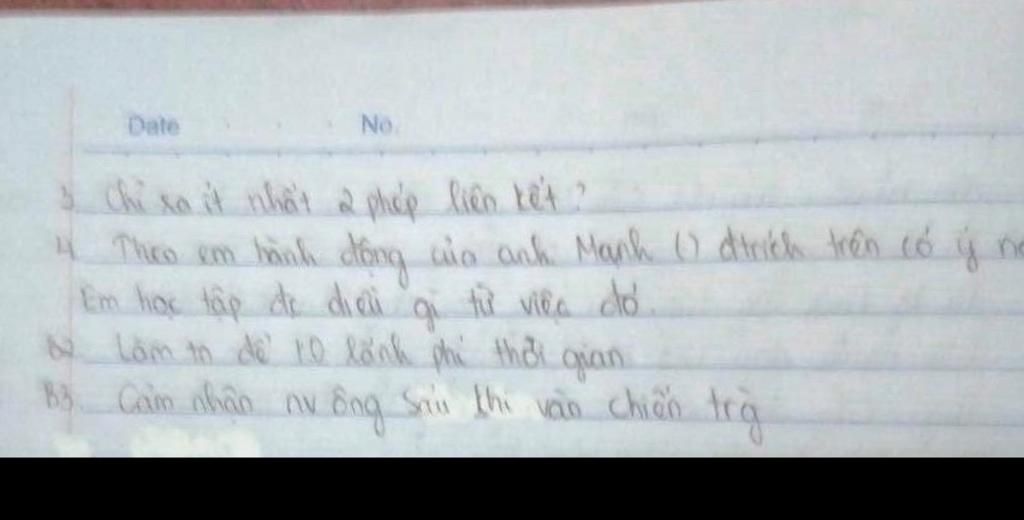 Date No.
3 Chỉ ra ít nhất 2 phép liên kết?
4 Theo em hành động của anh Mạnh () đtrích trên có ý
Em học tập đc điều gì từ việc đó.
B2 Làm tn để ko lãnh phí thời gian
B3. Cảm nhận nv ông Sáu khi vào chiến trg